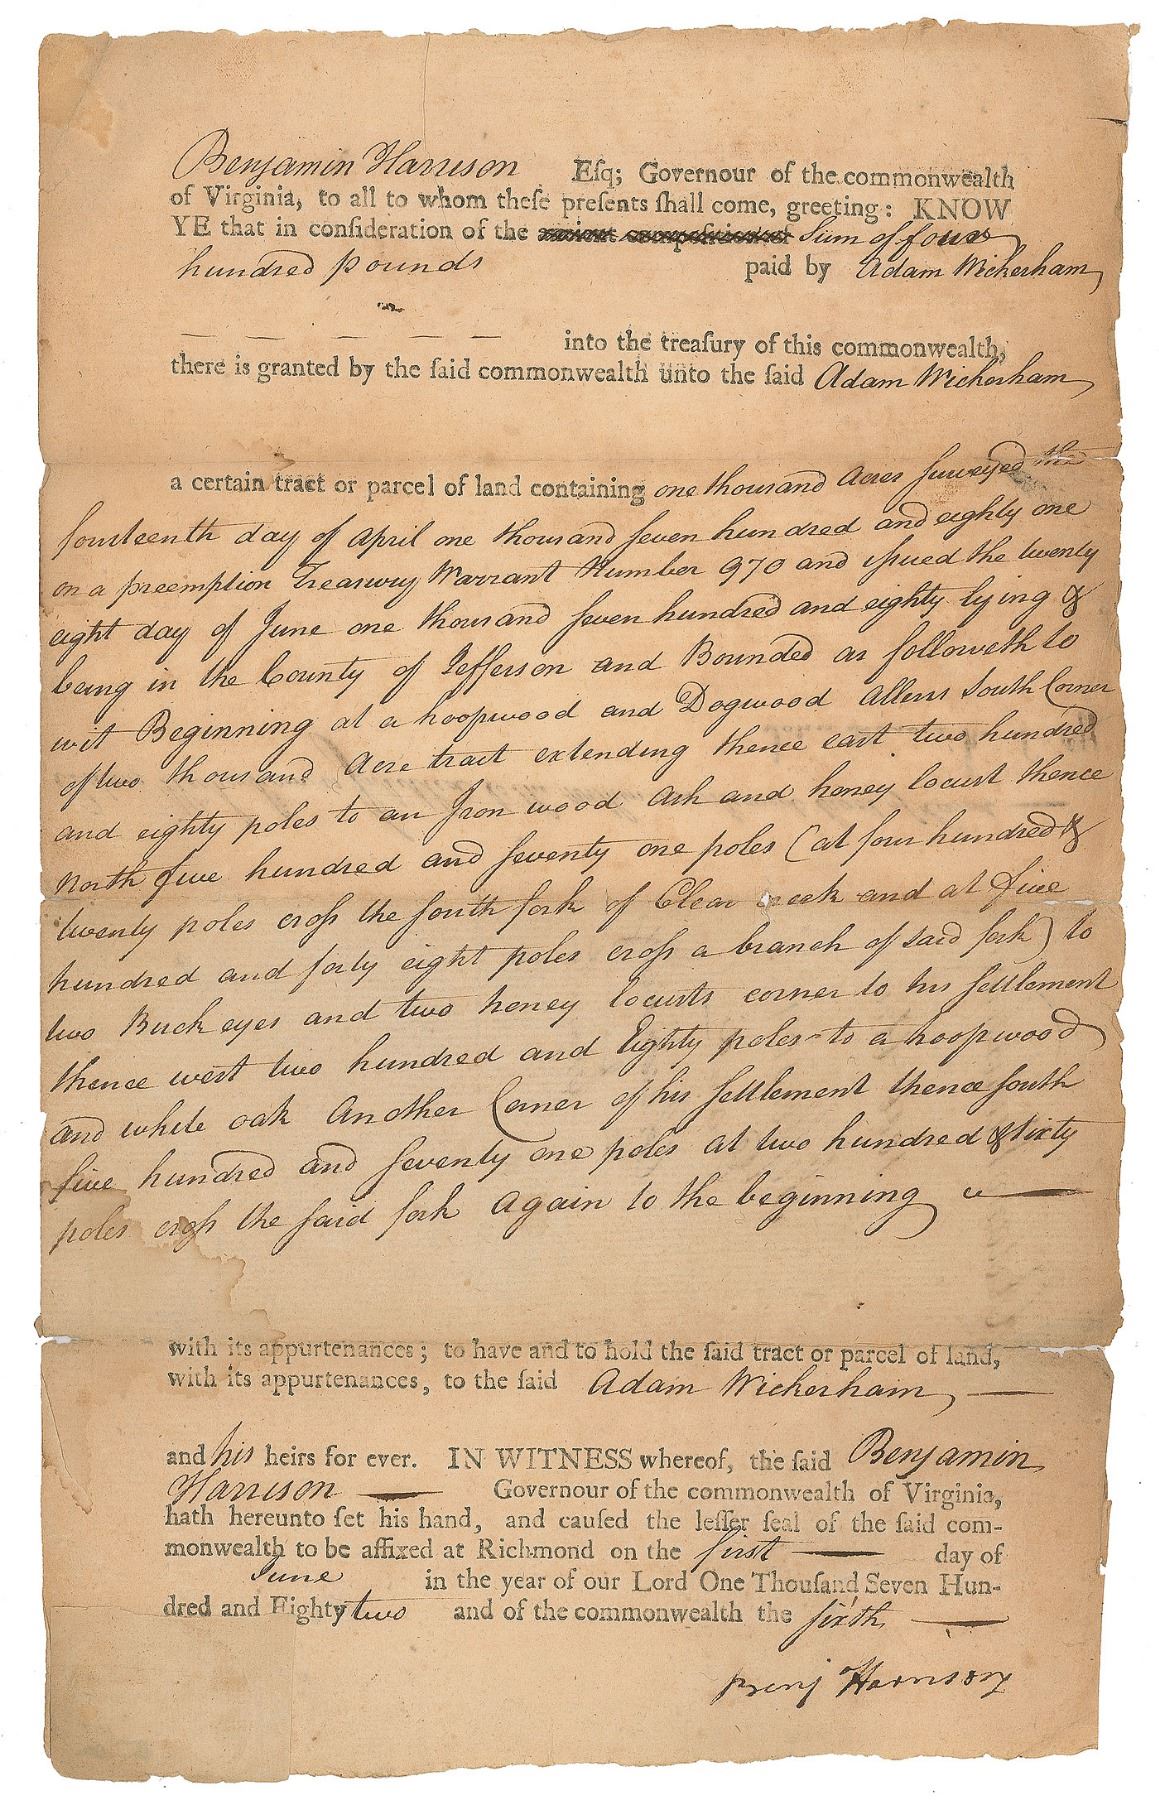 Benjamin Harrison Eſq; Governour of the commonwealth
of Virginia, to all to whom theſe preſents ſhall come, greeting: KNOW
YE that in conſideration of the ancient compoſition of Sum of four
hundred pounds paid by Adam Wickerham,
into the treaſury of this commonwealth,
there is granted by the ſaid commonwealth unto the ſaid Adam Wickerham,
a certain tract or parcel of land containing one thousand Acres ſurveyed the
fourteenth day of April one thousand ſeven hundred and eighty one
on a preemption Treasury Warrant Number 970 and iſsued the twenty
eight day of June one thousand ſeven hundred and eighty lying &
being in the County of Jefferson and Bounded as followeth to
wit Beginning at a hoopwood and Dogwood Allens South Corner
of two thousand Acre tract extending thence east two hundred
and eighty poles to an Iron wood Ash and honey locust thence
North five hundred and ſeventy one poles (at four hundred &
twenty poles croſs the ſouth fork of Clear Creek and at five
hundred and forty eight poles croſs a branch of said fork) to
two Buck eyes and two honey locusts corner to his ſettlement
thence west two hundred and Eighty poles to a hoopwood
and white oak Another Corner of his ſettlement thence ſouth
five hundred and ſeventy one poles at two hundred & sixty
poles croſs the ſaid fork Again to the beginning
with its appurtenances; to have and to hold the ſaid tract or parcel of land,
with its appurtenances, to the ſaid Adam Wickerham,
and his heirs for ever. IN WITNESS whereof, the ſaid Benjamin
Harrison Governour of the commonwealth of Virginia,
hath hereunto ſet his hand, and cauſed the leſſer ſeal of the ſaid com-
monwealth to be affixed at Richmond on the first day of
June in the year of our Lord One Thouſand Seven Hun-
dred and Eighty two and of the commonwealth the ſixth
Benj Harrison